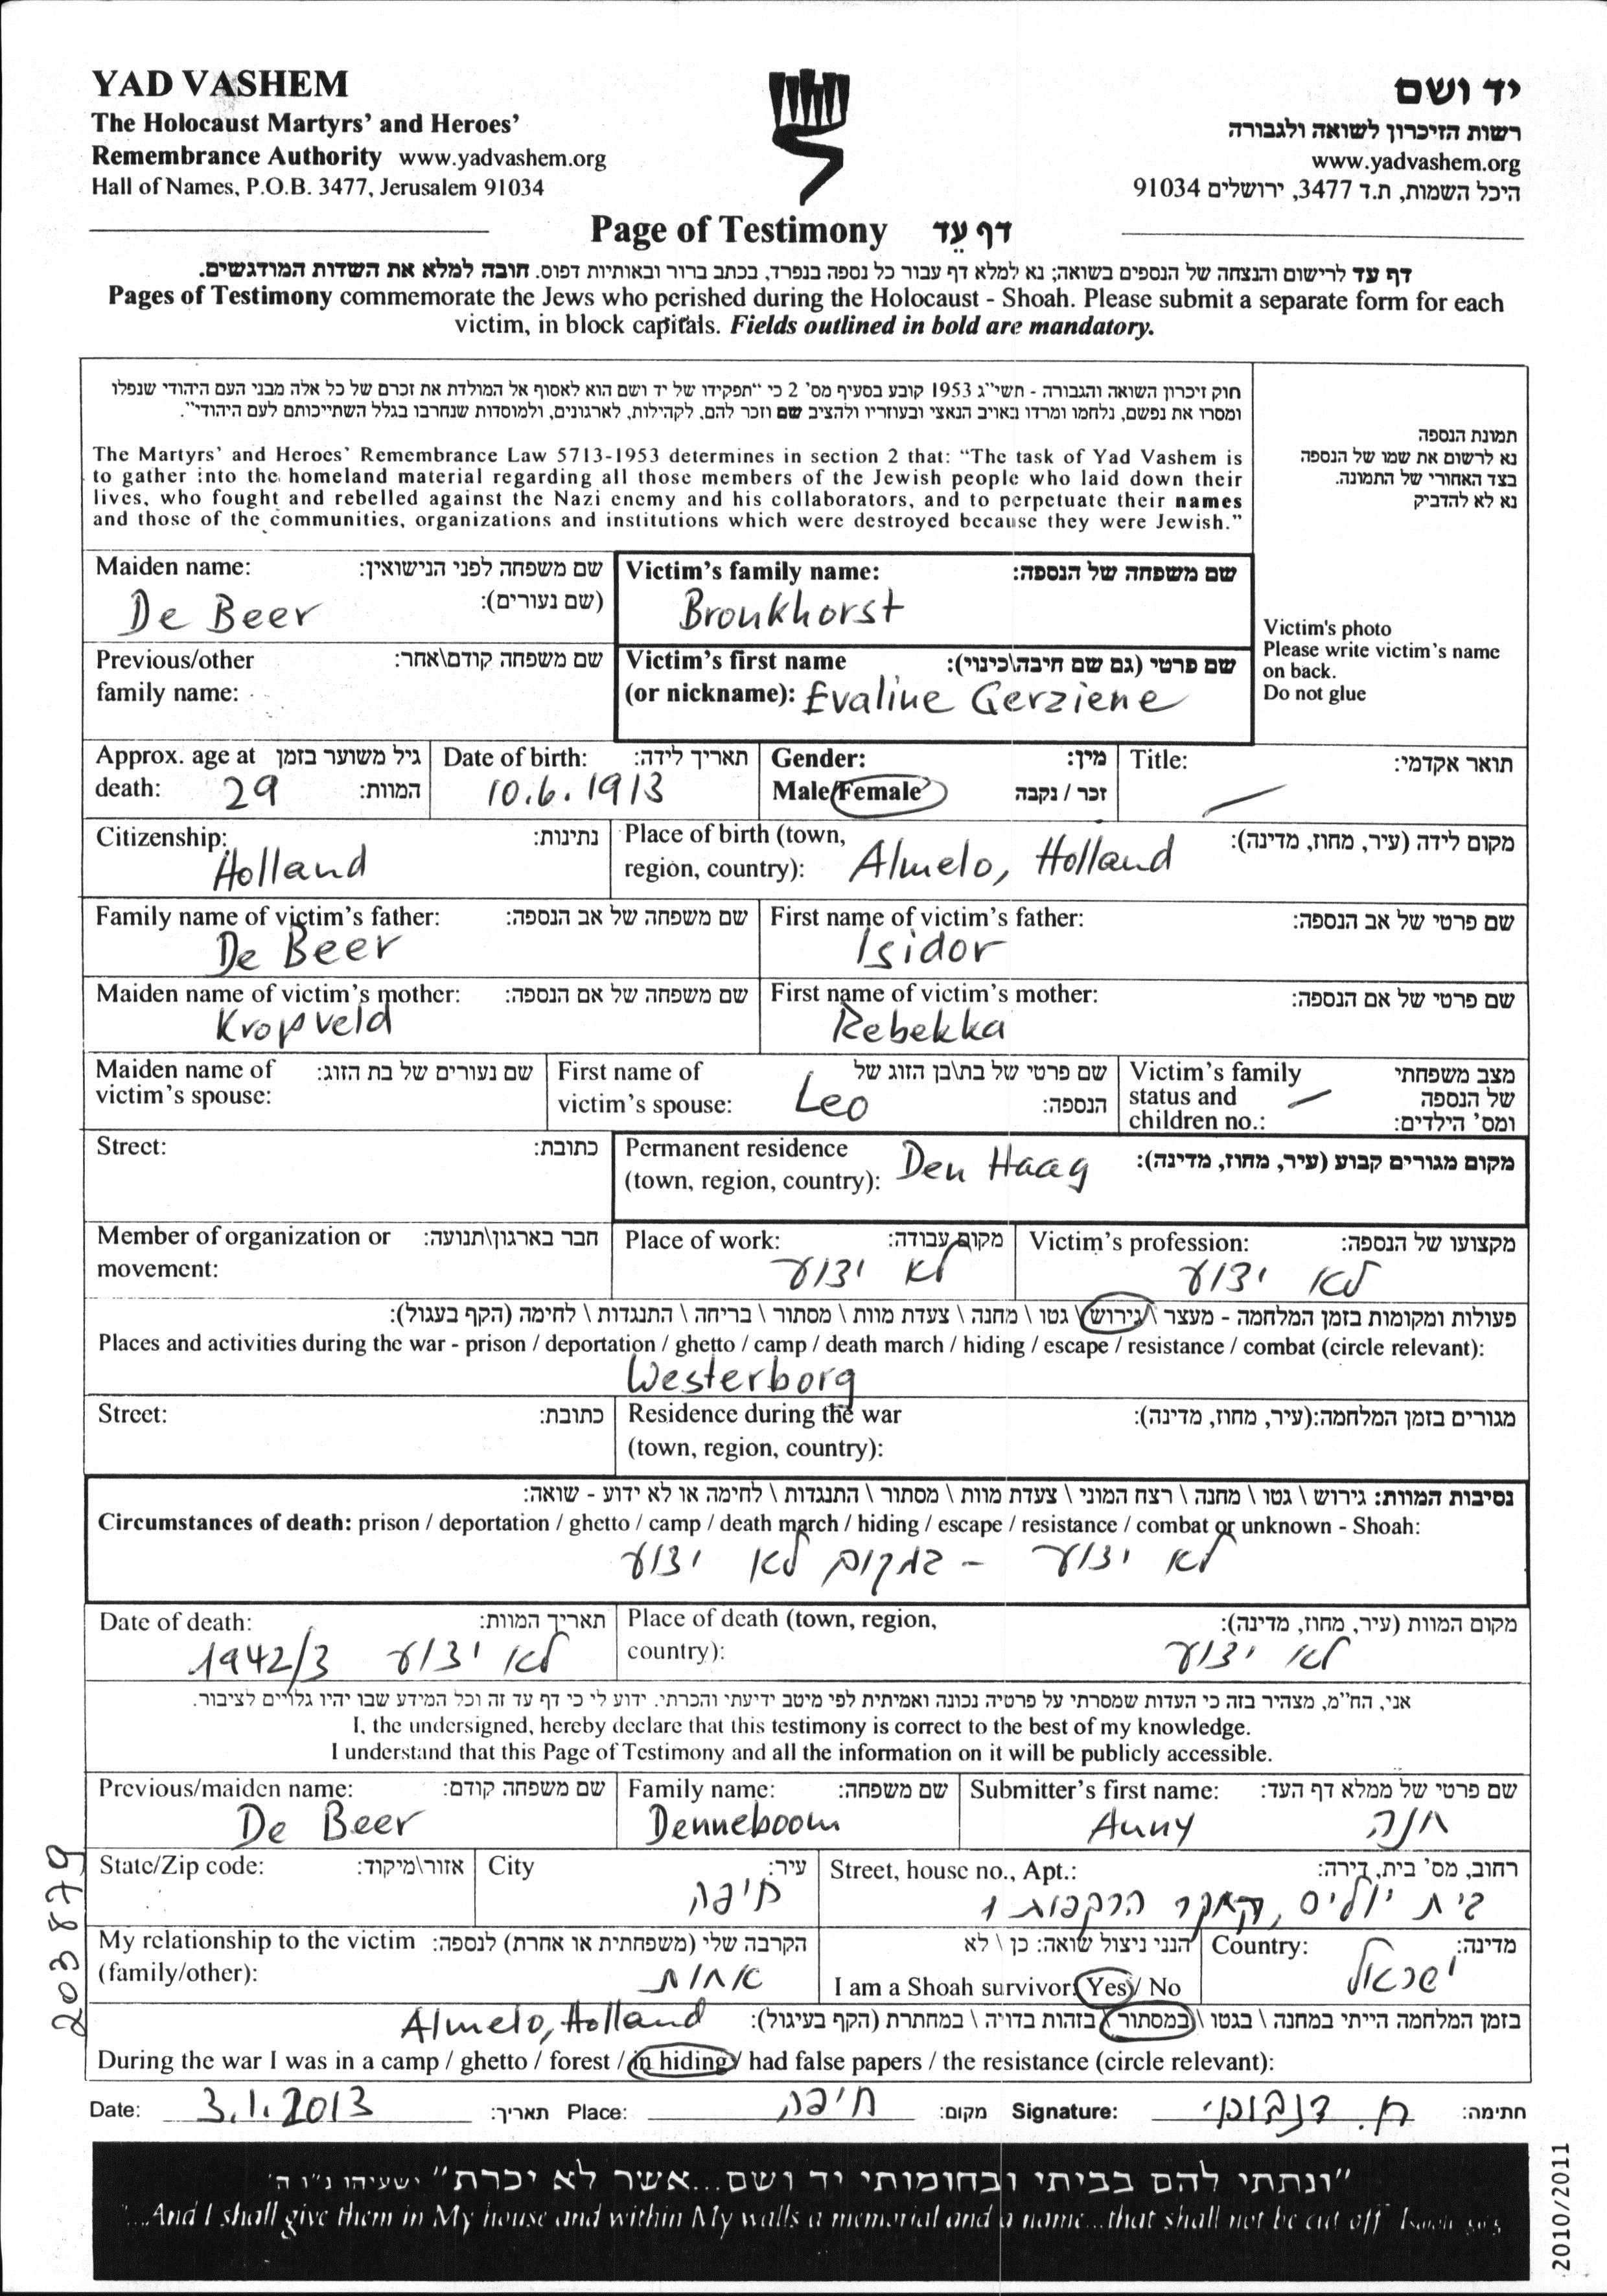 YAD VASHEM
The Holocaust Martyrs' and Heroes'
Remembrance Authority www.yadvashem.org
Hall of Names, P.O.B. 3477, Jerusalem 91034
יד ושם
רשות הזיכרון לשואה ולגבורה
www.yadvashem.org
היכל השמות, ת.ד 3477, ירושלים 91034
Page of Testimony דף עֵד
דף עד לרישום והנצחה של הנספים בשואה; נא למלא דף עבור כל נספה בנפרד, בכתב ברור ובאותיות דפוס. חובה למלא את השדות המודגשים.
Pages of Testimony commemorate the Jews who perished during the Holocaust - Shoah. Please submit a separate form for each
victim, in block capitals. Fields outlined in bold are mandatory.
חוק זיכרון השואה והגבורה - תשי"ג 1953 קובע בסעיף מס' 2 כי "תפקידו של יד ושם הוא לאסוף אל המולדת את זכרם של כל אלה מבני העם היהודי שנפלו
ומסרו את נפשם, נלחמו ומרדו באויב הנאצי ובעוזריו ולהציב שם וזכר להם, לקהילות, לארגונים, ולמוסדות שנחרבו בגלל השתייכותם לעם היהודי".
The Martyrs' and Heroes' Remembrance Law 5713-1953 determines in section 2 that: "The task of Yad Vashem is
to gather into the homeland material regarding all those members of the Jewish people who laid down their
lives, who fought and rebelled against the Nazi enemy and his collaborators, and to perpetuate their names
and those of the communities, organizations and institutions which were destroyed because they were Jewish."
תמונת הנספה
נא לרשום את שמו של הנספה
בצד האחורי של התמונה.
נא לא להדביק
Victim's photo
Please write victim's name
on back.
Do not glue
Maiden name: שם משפחה לפני הנישואין:
(שם נעורים):
De Beer
Victim's family name: שם משפחה של הנספה:
Bronkhorst
Previous/other שם משפחה קודם\אחר:
family name:
Victim's first name שם פרטי (גם שם חיבה\כינוי):
(or nickname): Evaline Gerziene
Approx. age at גיל משוער בזמן
death: 29 המוות:
Date of birth: תאריך לידה:
10.6.1913
Gender: מין:
Male/Female זכר / נקבה
Title: תואר אקדמי:
Citizenship: נתינות:
Holland
Place of birth (town, מקום לידה (עיר, מחוז, מדינה):
region, country): Almelo, Holland
Family name of victim's father: שם משפחה של אב הנספה:
De Beer
First name of victim's father: שם פרטי של אב הנספה:
Isidor
Maiden name of victim's mother: שם משפחה של אם הנספה:
Kropveld
First name of victim's mother: שם פרטי של אם הנספה:
Rebekka
Maiden name of שם נעורים של בת הזוג:
victim's spouse:
First name of שם פרטי של בת\בן הזוג של
victim's spouse: Leo הנספה:
Victim's family מצב משפחתי
status and של הנספה
children no.: ומס' הילדים:
Street: כתובת:
Permanent residence מקום מגורים קבוע (עיר, מחוז, מדינה):
(town, region, country): Den Haag
Member of organization or חבר בארגון\תנועה:
movement:
Place of work: מקום עבודה:
לא ידוע
Victim's profession: מקצועו של הנספה:
לא ידוע
פעולות ומקומות בזמן המלחמה - מעצר \ גירוש \ גטו \ מחנה \ צעדת מוות \ מסתור \ בריחה \ התנגדות \ לחימה (הקף בעגול):
Places and activities during the war - prison / deportation / ghetto / camp / death march / hiding / escape / resistance / combat (circle relevant):
Westerborg
Street: כתובת:
Residence during the war מגורים בזמן המלחמה:(עיר, מחוז, מדינה):
(town, region, country):
נסיבות המוות: גירוש \ גטו \ מחנה \ רצח המוני \ צעדת מוות \ מסתור \ התנגדות \ לחימה או לא ידוע - שואה:
Circumstances of death: prison / deportation / ghetto / camp / death march / hiding / escape / resistance / combat or unknown - Shoah:
לא ידוע - במקום לא ידוע
Date of death: תאריך המוות:
1942/3 לא ידוע
Place of death (town, region, מקום המוות (עיר, מחוז, מדינה):
country): לא ידוע
אני, הח"מ, מצהיר בזה כי העדות שמסרתי על פרטיה נכונה ואמיתית לפי מיטב ידיעתי והכרתי. ידוע לי כי דף עד זה וכל המידע שבו יהיו גלויים לציבור.
I, the undersigned, hereby declare that this testimony is correct to the best of my knowledge.
I understand that this Page of Testimony and all the information on it will be publicly accessible.
Previous/maiden name: שם משפחה קודם:
De Beer
Family name: שם משפחה:
Denneboom
Submitter's first name: שם פרטי של ממלא דף העד:
Anny חנה
State/Zip code: אזור\מיקוד:
City עיר:
חיפה
Street, house no., Apt.: רחוב, מס' בית, דירה:
בית יולים, הרקפות 1
My relationship to the victim הקרבה שלי (משפחתית או אחרת) לנספה:
(family/other): אחות
הנני ניצול שואה: כן \ לא
I am a Shoah survivor: Yes / No
Country: מדינה:
ישראל
בזמן המלחמה הייתי במחנה \ בגטו \ במסתור \ בזהות בדויה \ במחתרת (הקף בעיגול): Almelo, Holland
During the war I was in a camp / ghetto / forest / in hiding / had false papers / the resistance (circle relevant):
Date: 3.1.2013 תאריך: Place: חיפה מקום: Signature: ח. דנבום חתימה:
"ונתתי להם בביתי ובחומותי יד ושם...אשר לא יכרת" ישעיהו נ"ו ה'
"...And I shall give them in My house and within My walls a memorial and a name...that shall not be cut off" Isaiah 56:5
203879
2010/2011